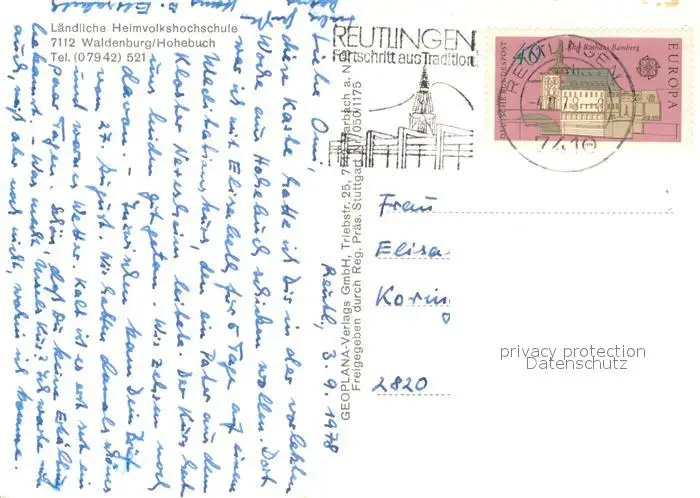 Ländliche Heimvolkshochschule
7112 Waldenburg/Hohebuch
Tel. (07942) 521
REUTLINGEN
Fortschritt aus Tradition
REUTLINGEN
7410
DEUTSCHE BUNDESPOST
40
Altes Rathaus Bamberg
EUROPA
GEOPLANA-Verlags GmbH, Triebstr. 25, 7142 Marbach a. N.
Freigegeben durch Reg. Präs. Stuttgart Nr. 050/1175
Reutl., 3.9.1978
Liebe Omi,
diese Karte hatte ich Dir in der vorletzten
Woche aus Hohebuch schicken wollen. Dort
war ich mit Elisabeth für 5 Tage auf einem
Meditationskurs, den ein Pater aus dem
Kloster Neresheim leitete. Der Kurs hat
uns beiden gut getan. Wir zehren noch
davon. - Inzwischen kam Dein Brief
vom 27. August. Wir hatten damals schönes
und warmes Wetter. Kalt ist es erst seit ein
paar Tagen. Schön, daß Du keine Erkältung
bekommst. - Was macht Kur? Ich warte
auch, weiß aber noch nicht, wohin ich komme.
Frau
Elisa
Korin
2820
privacy protection
Datenschutz